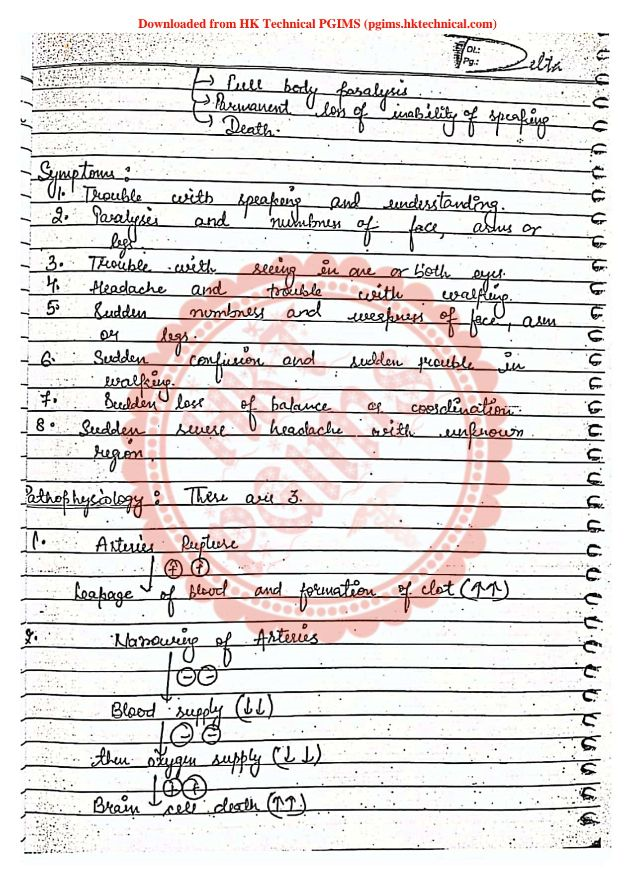 Downloaded from HK Technical PGIMS (pgims.hktechnical.com)
DT.:
Pg.:
Delta
↳ Full body paralysis
↳ Parmanent loss of inability of speaking
↳ Death.
Symptoms:
1. Trouble with speaking and understanding.
2. Paralysis and numbness of face, arms or
legs.
3. Trouble with seeing in one or both eyes.
4. Headache and trouble with walking.
5. Sudden numbness and weakness of face, arm
or legs.
6. Sudden confusion and sudden trouble in
walking.
7. Sudden loss of balance or coordination.
8. Sudden severe headache with unknown
region.
Pathophysiology: There are 3.
1. Arteries Rupture
↓ ⊕ ⊕
Leakage of blood and formation of clot (↑↑)
2. Narrowing of Arteries
↓ ⊖ ⊖
Blood supply (↓↓)
↓ ⊖ ⊖
then oxygen supply (↓↓)
↓ ⊕ ⊕
Brain cell death (↑↑)
HKT
PGIMS